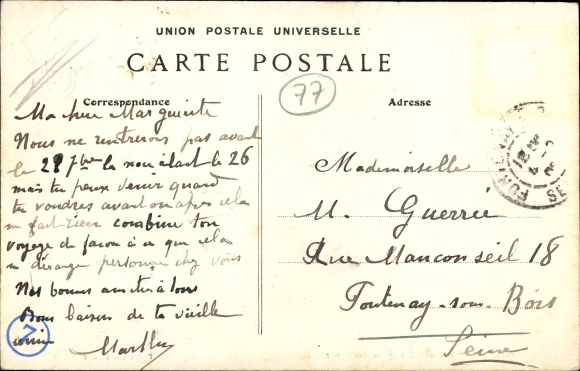 UNION POSTALE UNIVERSELLE
CARTE POSTALE
77
Correspondance
Ma chère Marguerite
Nous ne rentrerons pas avant
le 28 7bre la noce étant le 26
mais tu peux venir quand
tu voudras avant ou après cela
ne fait rien combine ton
voyage de façon à ce que cela
ne dérange personne chez vous
Nos bonnes amitiés à tous
Bons baisers de ta vieille
amie
Marthe
7
Adresse
Mademoiselle
M. Guerrié
Rue Mauconseil 18
Fontenay-sous-Bois
Seine